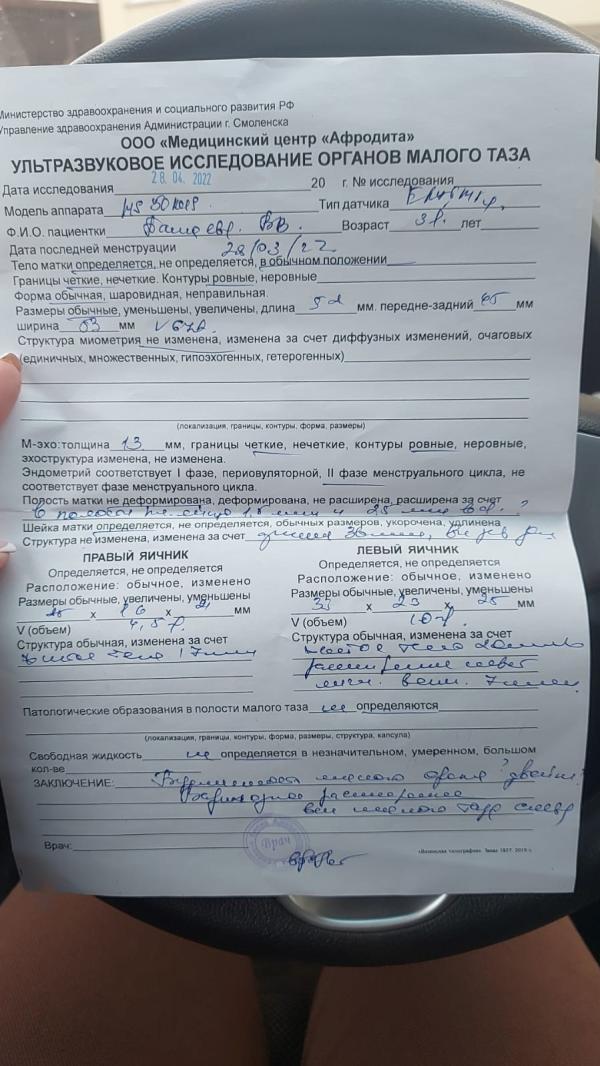 Министерство здравоохранения и социального развития РФ
Управление здравоохранения Администрации г. Смоленска
ООО «Медицинский центр «Афродита»
УЛЬТРАЗВУКОВОЕ ИССЛЕДОВАНИЕ ОРГАНОВ МАЛОГО ТАЗА
Дата исследования 28.04.2022 20 г. № исследования
Модель аппарата Тип датчика
Ф.И.О. пациентки Возраст лет
Дата последней менструации 28/03/22
Тело матки определяется, не определяется, в обычном положении
Границы четкие, нечеткие. Контуры ровные, неровные
Форма обычная, шаровидная, неправильная.
Размеры обычные, уменьшены, увеличены, длина мм. передне-задний мм
ширина 53 мм
Структура миометрия не изменена, изменена за счет диффузных изменений, очаговых
(единичных, множественных, гипоэхогенных, гетерогенных)
(локализация, границы, контуры, форма, размеры)
М-эхо: толщина 13 мм, границы четкие, нечеткие, контуры ровные, неровные,
эхоструктура изменена, не изменена.
Эндометрий соответствует I фазе, периовуляторной, II фазе менструального цикла, не
соответствует фазе менструального цикла.
Полость матки не деформирована, деформирована, не расширена, расширена за счет
в полости
Шейка матки определяется, не определяется, обычных размеров, укорочена, удлинена
Структура не изменена, изменена за счет
ПРАВЫЙ ЯИЧНИК
Определяется, не определяется
Расположение: обычное, изменено
Размеры обычные, увеличены, уменьшены
х 16 х 21 мм
V (объем) 4,5
Структура обычная, изменена за счет
желтое тело 17 мм
ЛЕВЫЙ ЯИЧНИК
Определяется, не определяется
Расположение: обычное, изменено
Размеры обычные, увеличены, уменьшены
33 х 23 х 25 мм
V (объем)
Структура обычная, изменена за счет
желтое тело
расширение слева
вен. 7 мм
Патологические образования в полости малого таза не определяются
(локализация, границы, контуры, форма, размеры, структура, капсула)
Свободная жидкость не определяется в незначительном, умеренном, большом
кол-ве
ЗАКЛЮЧЕНИЕ: Беременность малого срока ? двойня?
Варикозное расширение
вен малого таза слева
Врач:
Врач
«Вяземская типография» Заказ 1827. 2019 г.